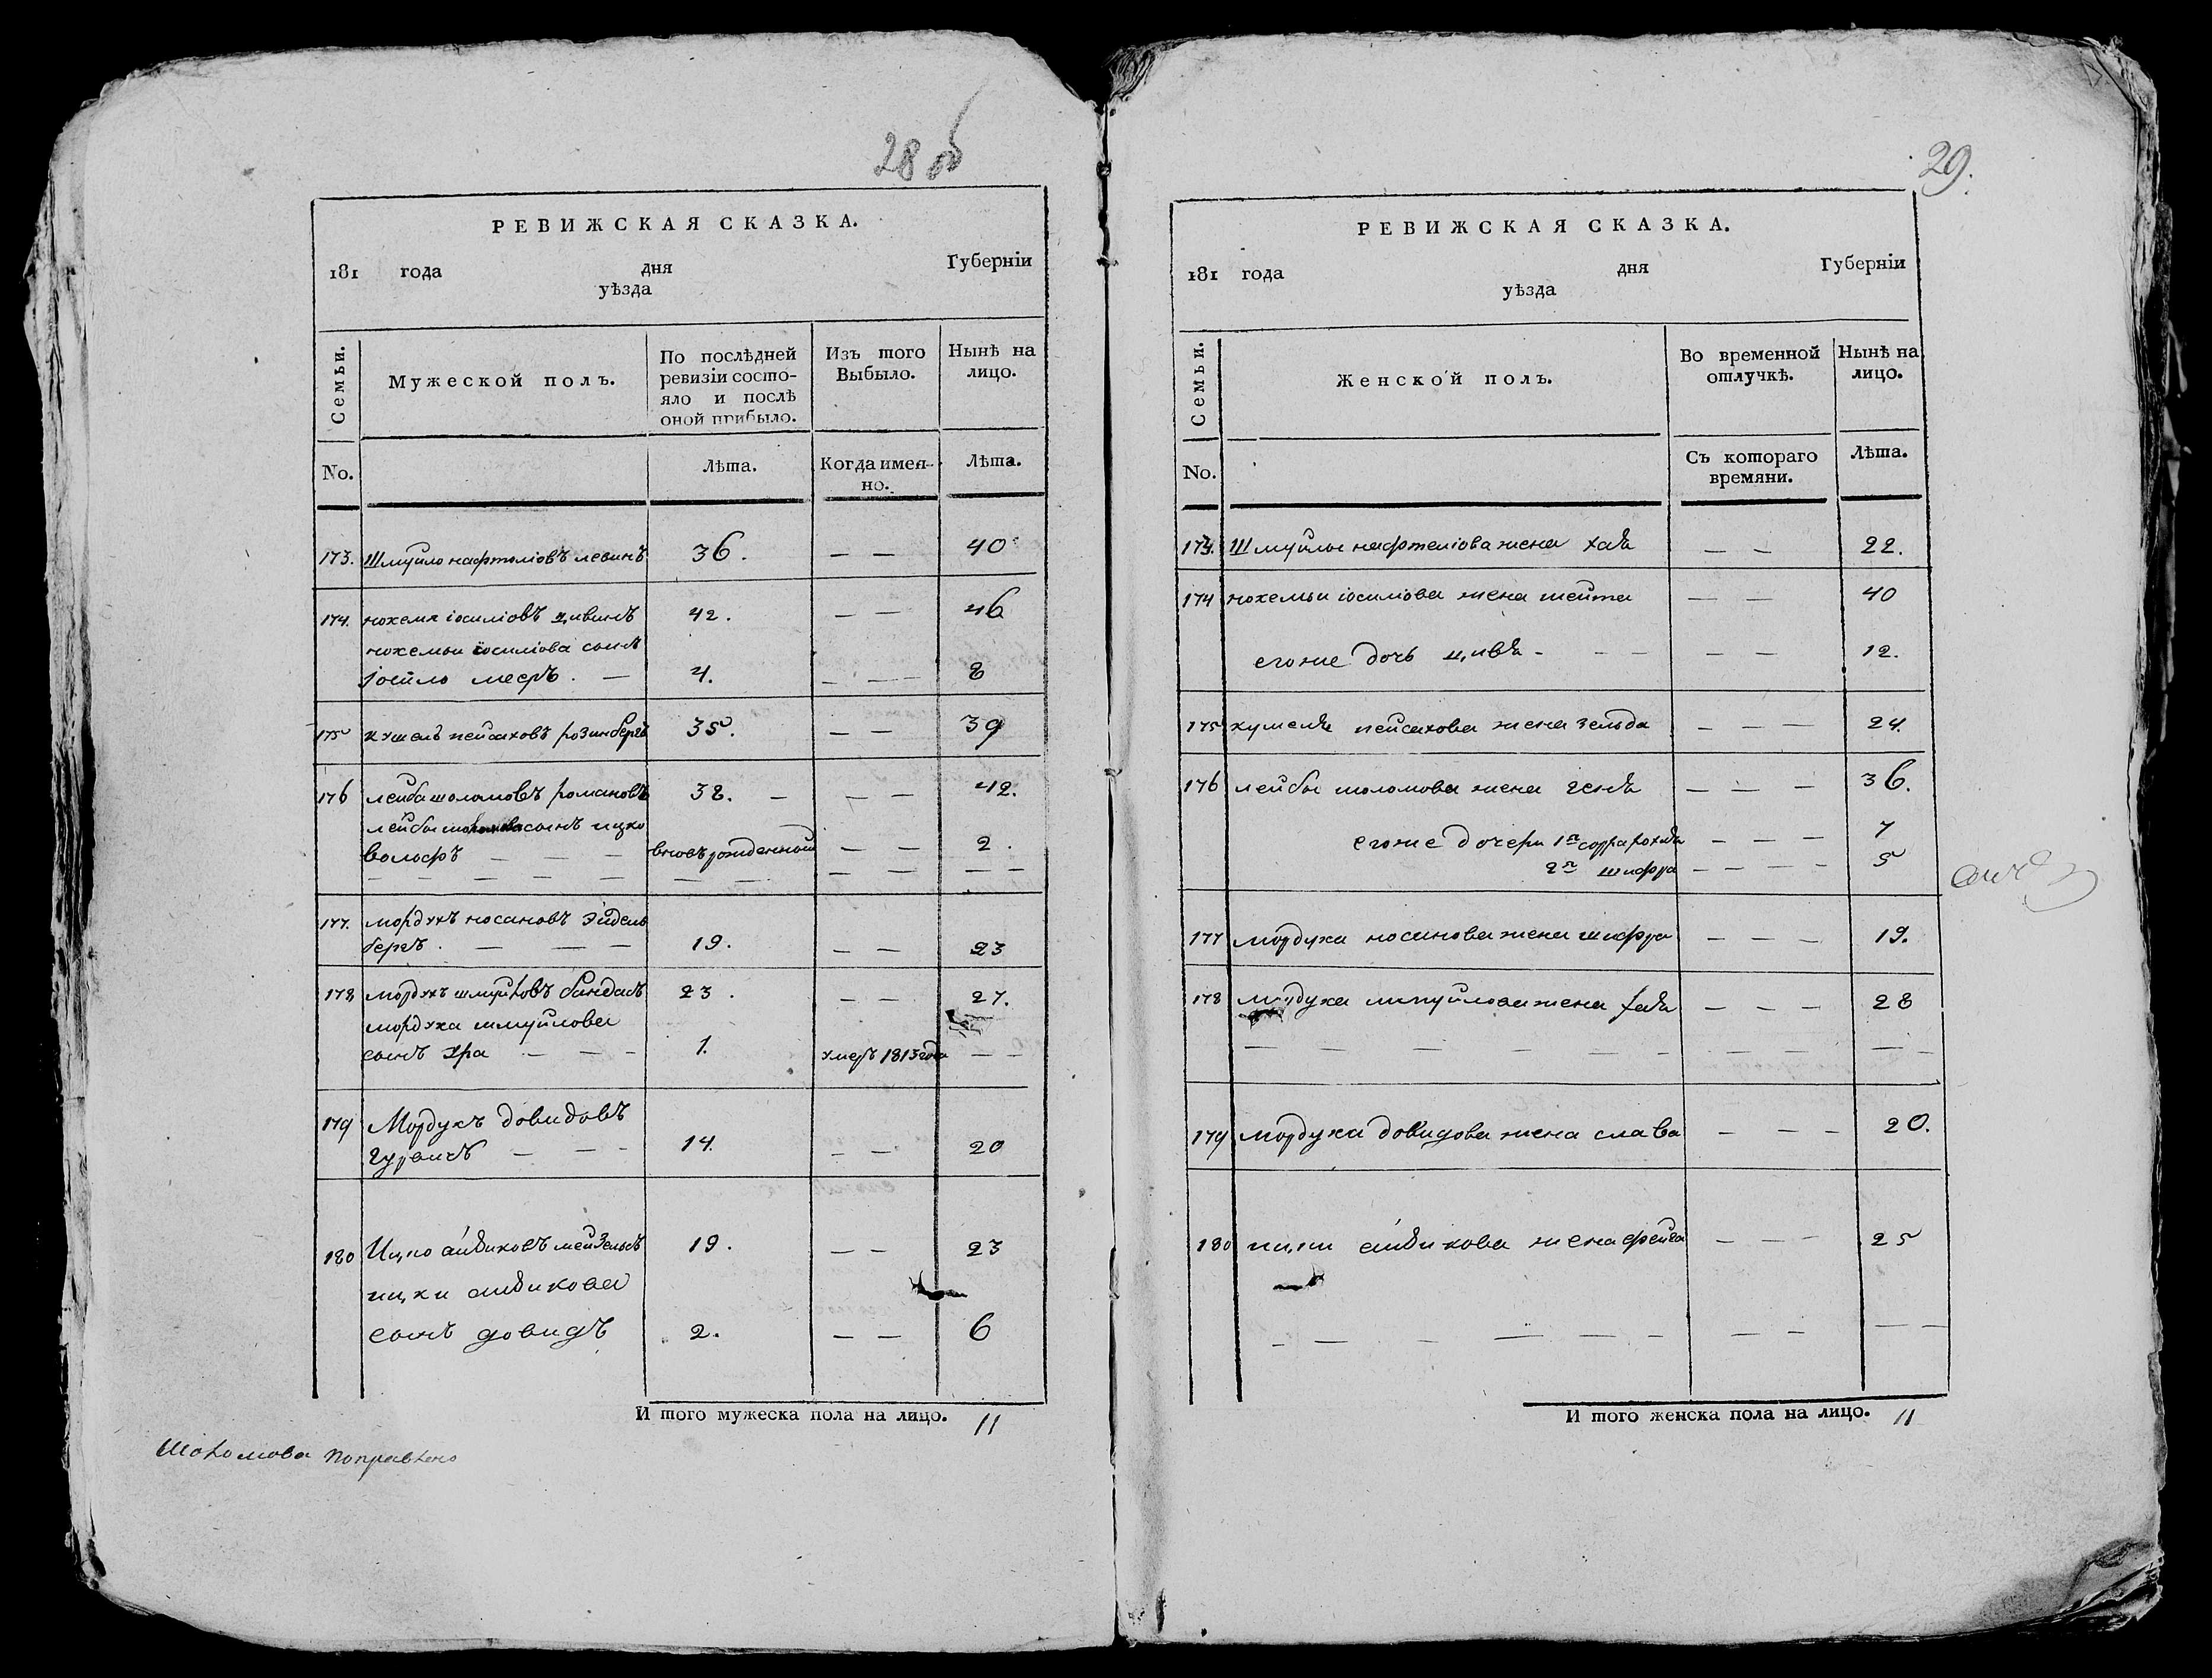 28 об
РЕВИЖСКАЯ СКАЗКА.
181 года дня Губерніи
уѣзда
Семьи.
Мужеской полъ.
По послѣдней ревизіи состо-
яло и послѣ оной прибыло.
Изъ того Выбыло.
Нынѣ на лицо.
No.
Лѣта.
Когда имен-
но.
Лѣта.
173. Шмуйло нафтоліовъ левинъ 36. — — 40
174. нохемя іосиліовъ цивинъ 42. — — 46
нохемьи іосиліова сынъ
іосійло мееръ. — 4. — — 8
175 кушель пейсаховъ розинбергъ 35. — — 39
176 лейба шоломовъ романовъ 38. — — — 42.
лейбы шоломова сынъ ицко
вольфъ — — — вновьрожденный — — 2.
177. мордухъ носановъ эйдель
бергъ. — — — 19. — — 23
178 мордухъ шмуйловъ бандасъ 23. — — 27.
мордуха шмуйлова
сынъ ура — — — 1. умеръ 1813 года — —
179 Мордухъ довидовъ
гуревичъ — — — 14. — — 20
180 Ицко айзиковъ мейзельсъ 19. — — 23
ицки айзикова
сынъ довидъ 2. — — 6
И того мужеска пола на лицо. 11
Шоломова поправлено
29.
РЕВИЖСКАЯ СКАЗКА.
181 года дня Губерніи
уѣзда
Семьи.
Женской полъ.
Во временной отлучкѣ.
Нынѣ на лицо.
No.
Съ котораго времяни.
Лѣта.
173. Шмуйлы нафтеліова жена хая — — 22.
174 нохемьи іосиліова жена шейта — — 40
егоже дочь цивя — — — — 12.
175 кушеля пейсахова жена зельда — — — 24.
176 лейбы шоломова жена геня — — — 36.
егоже дочери 1я сорра рохля — — — 7
2я шифра — — — — 5
177 мордуха носанова жена шифра — — — 19.
178 мордуха шмуйлова жена хая — — — 28
179 мордуха довидова жена слава — — — 20.
180 ицки айзикова жена фейга — — — 25
И того женска пола на лицо. 11